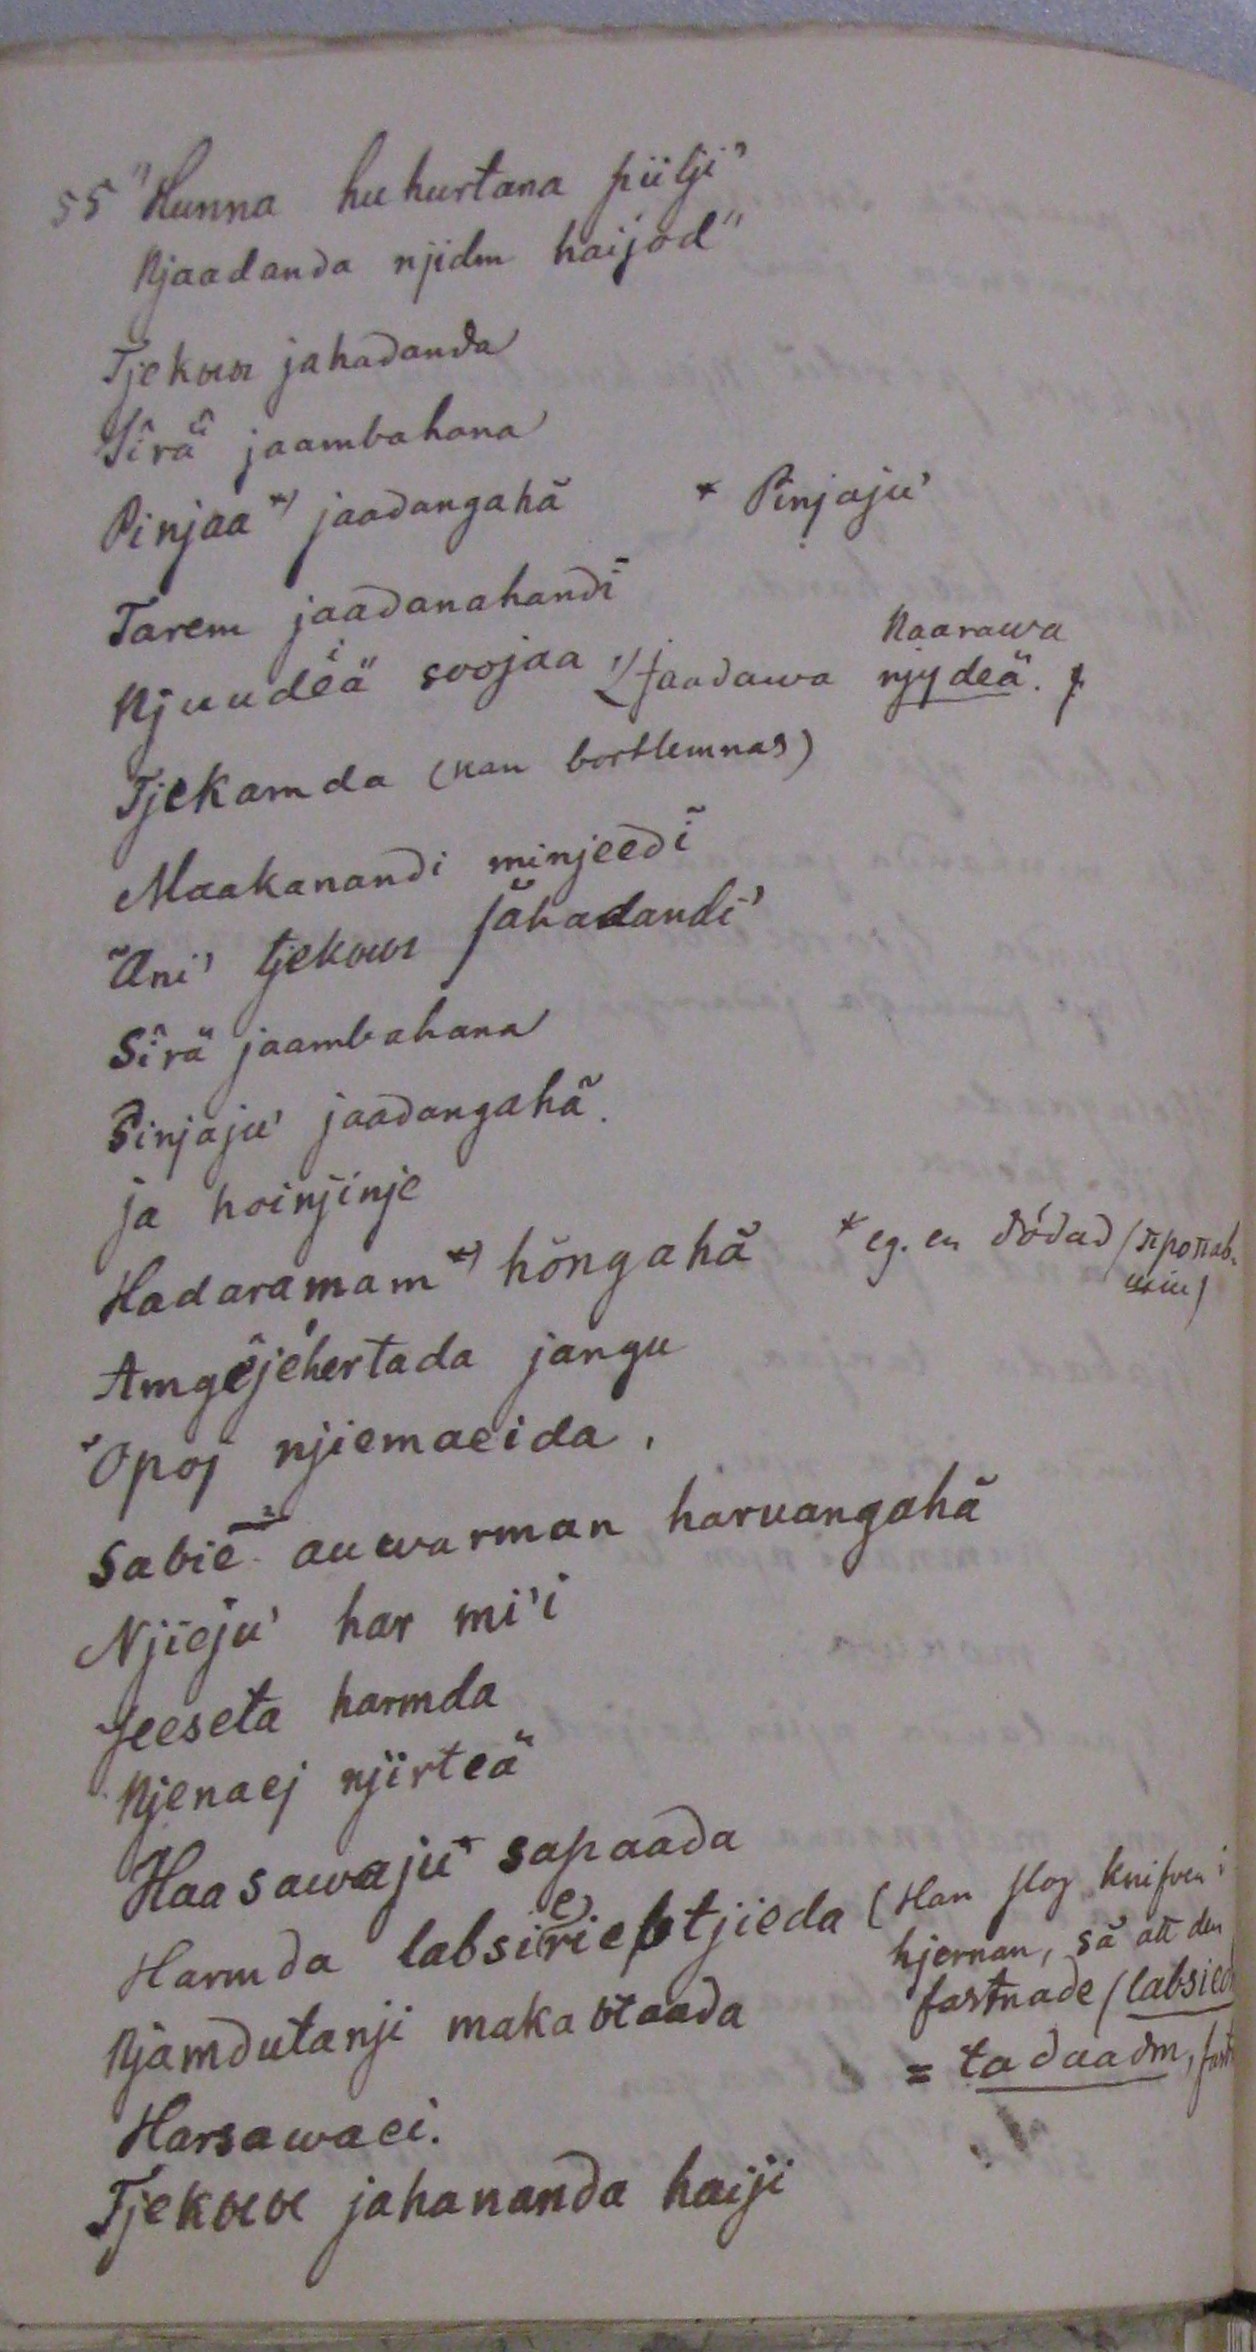 55 "Hunna huhurtana piilji'
Njaadanda njidm haijod"
Tjekaɯ jahadanda
Sîrä jaambahana
Pinjaa*) jaadangahă * Pinjaju'
Tarem jaadanahandī
Njuudeiä soojaa Jaadawa njydeä.
Naarawa
Tjekamda (kan bortlemnas)
Maakanandi minjeedī
Ăni' tjekaɯ jăhadandi'
Sîrä jaambahana
Pinjaju' jaadangahă.
ja hoinjinje
Hadaramam*) hŏngahă * eg. en dödad (пропав-
шiи)
Amgêjéhertada jangu
Ŏpoj njiemaeida.
Sabie auwarman haruangahă
Njieju' har mi'i
Jeeseta harmda
Njenaej njirteä
Haasawaju* sapaada
Harmda labsirieptjieda (Han slog knifven i
e
hjernan, så att den
fastnade (labsied
Njamdutanji makabtaada
= tadaadm, fast
Harsawaei.
Tjekaɯ jahananda haiji